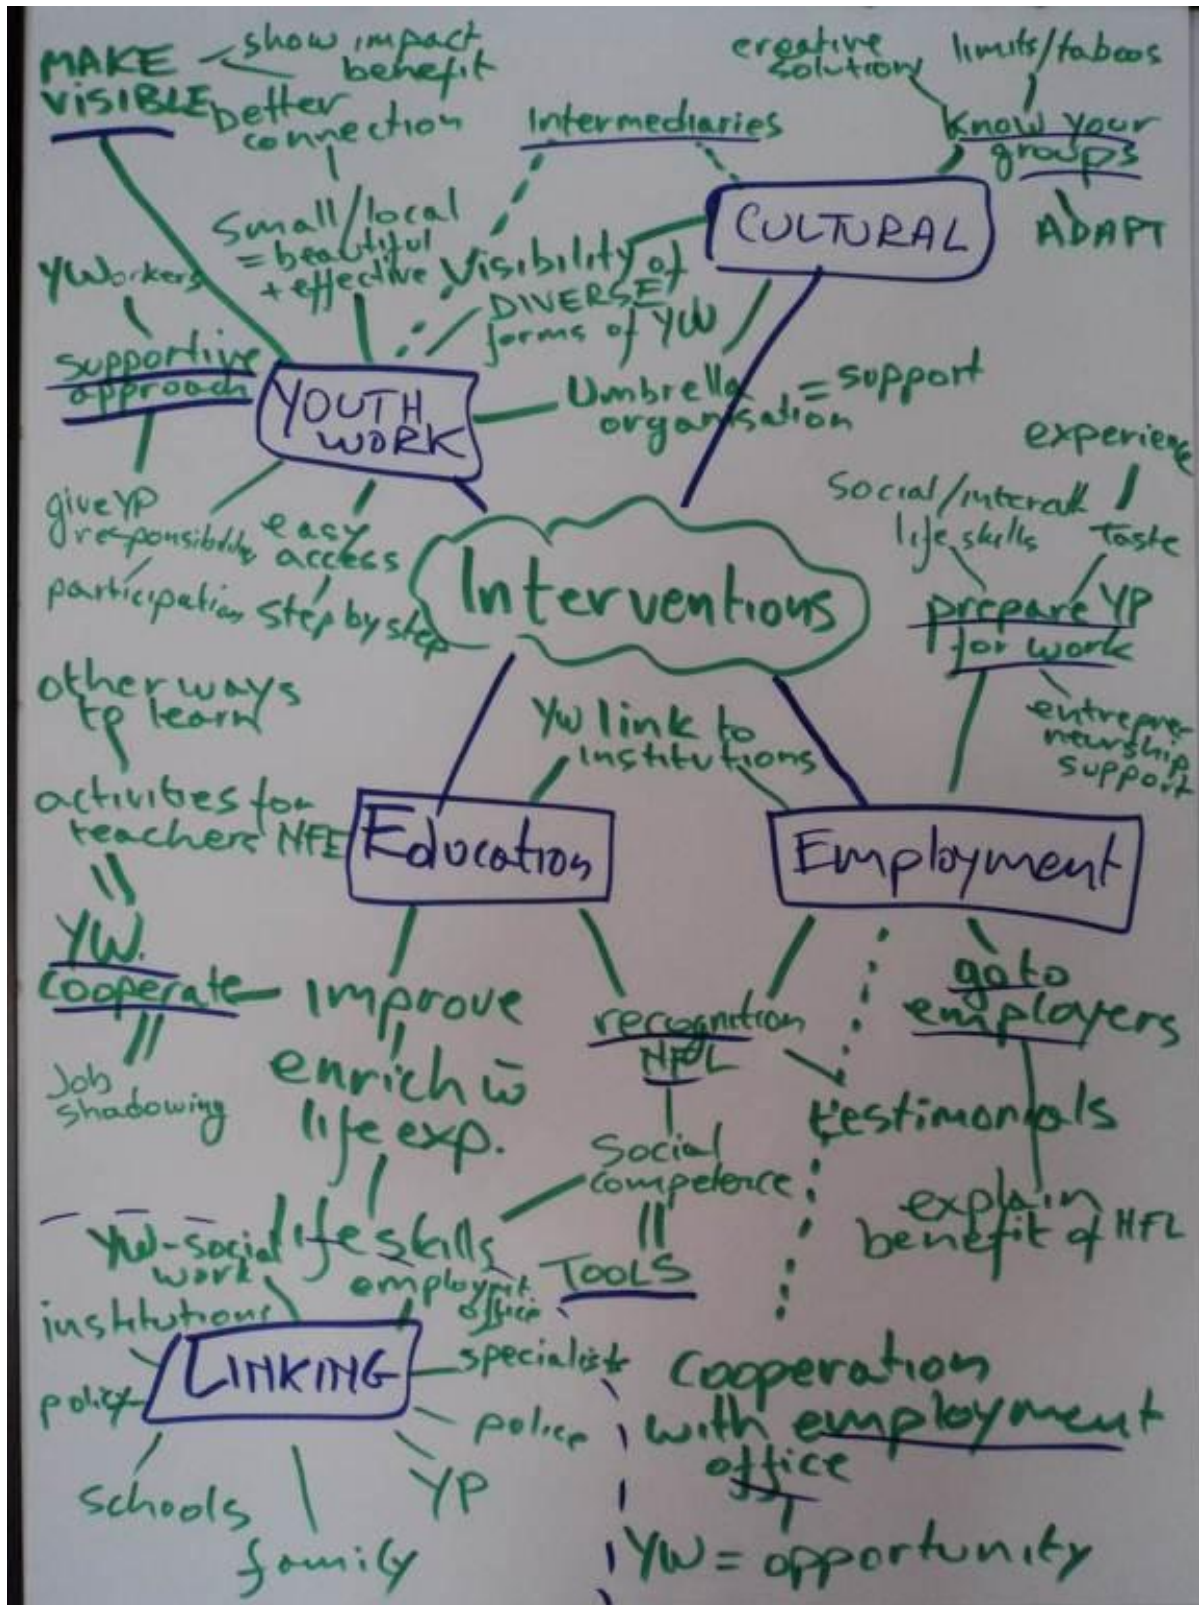 MAKE
VISIBLE
show impact
benefit
better
connection
small/local
= beautiful
+ effective
Intermediaries
creative
solution
limits/taboos
know your
groups
ADAPT
CULTURAL
Visibility of
DIVERSE
forms of YW
Umbrella
organisation
= support
YWorkers
supportive
approach
YOUTH
WORK
give YP
responsibility
participation
easy
access
step by step
Interventions
experience
social/
life skills
taste
prepare YP
for work
entrepre-
neurship
support
other ways
to learn
activities for
teachers NFE
YW link to
institutions
Education
Employment
YW.
cooperate
Job
shadowing
improve
enrich w̄
life exp.
life skills
recognition
NFL
social
competence
TOOLS
go to
employers
testimonials
explain
benefit of NFL
YW-social
work
employmt.
office
institutions
LINKING
specialists
policy
police
schools
family
YP
cooperation
with employment
office
YW = opportunity